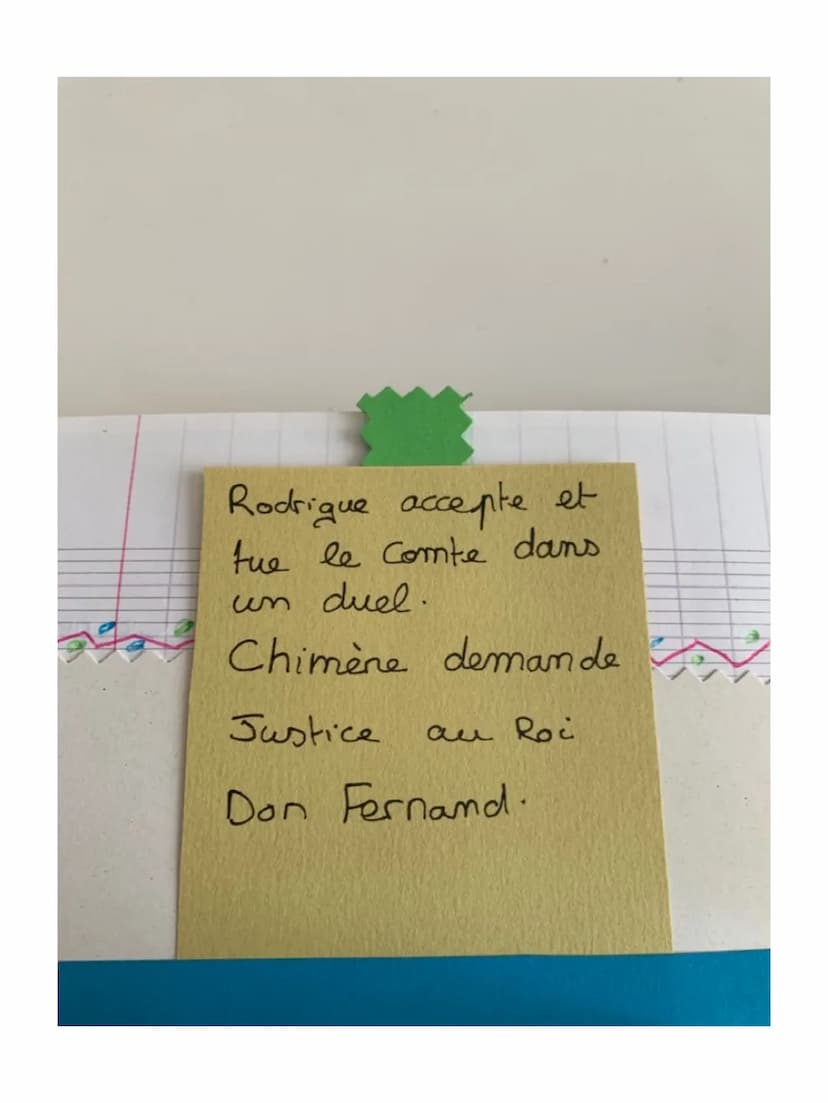 Rodrigue accepte et
tue le Comte dans
un duel.
Chimène demande
Justice au Roi
Don Fernand.